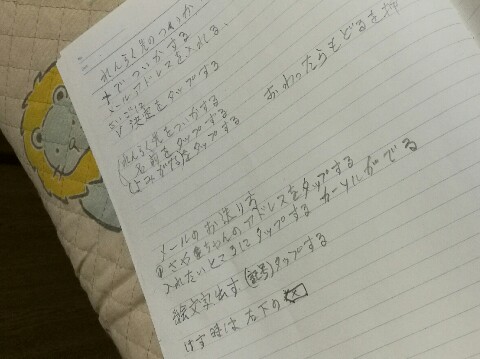 れんらく先のついか
+でついかする
メールアドレスを入れる。
さいごに
✓決定をタップする
おわったらもどるを押
(れんらく先をついかする
名前をタップする
よみがなをタップする
メールのお送り方
さや ちゃんのアドレスをタップする
入れたいところにタップする カーソルがでる
絵文字出す(記号)タップする
けす時は右下の